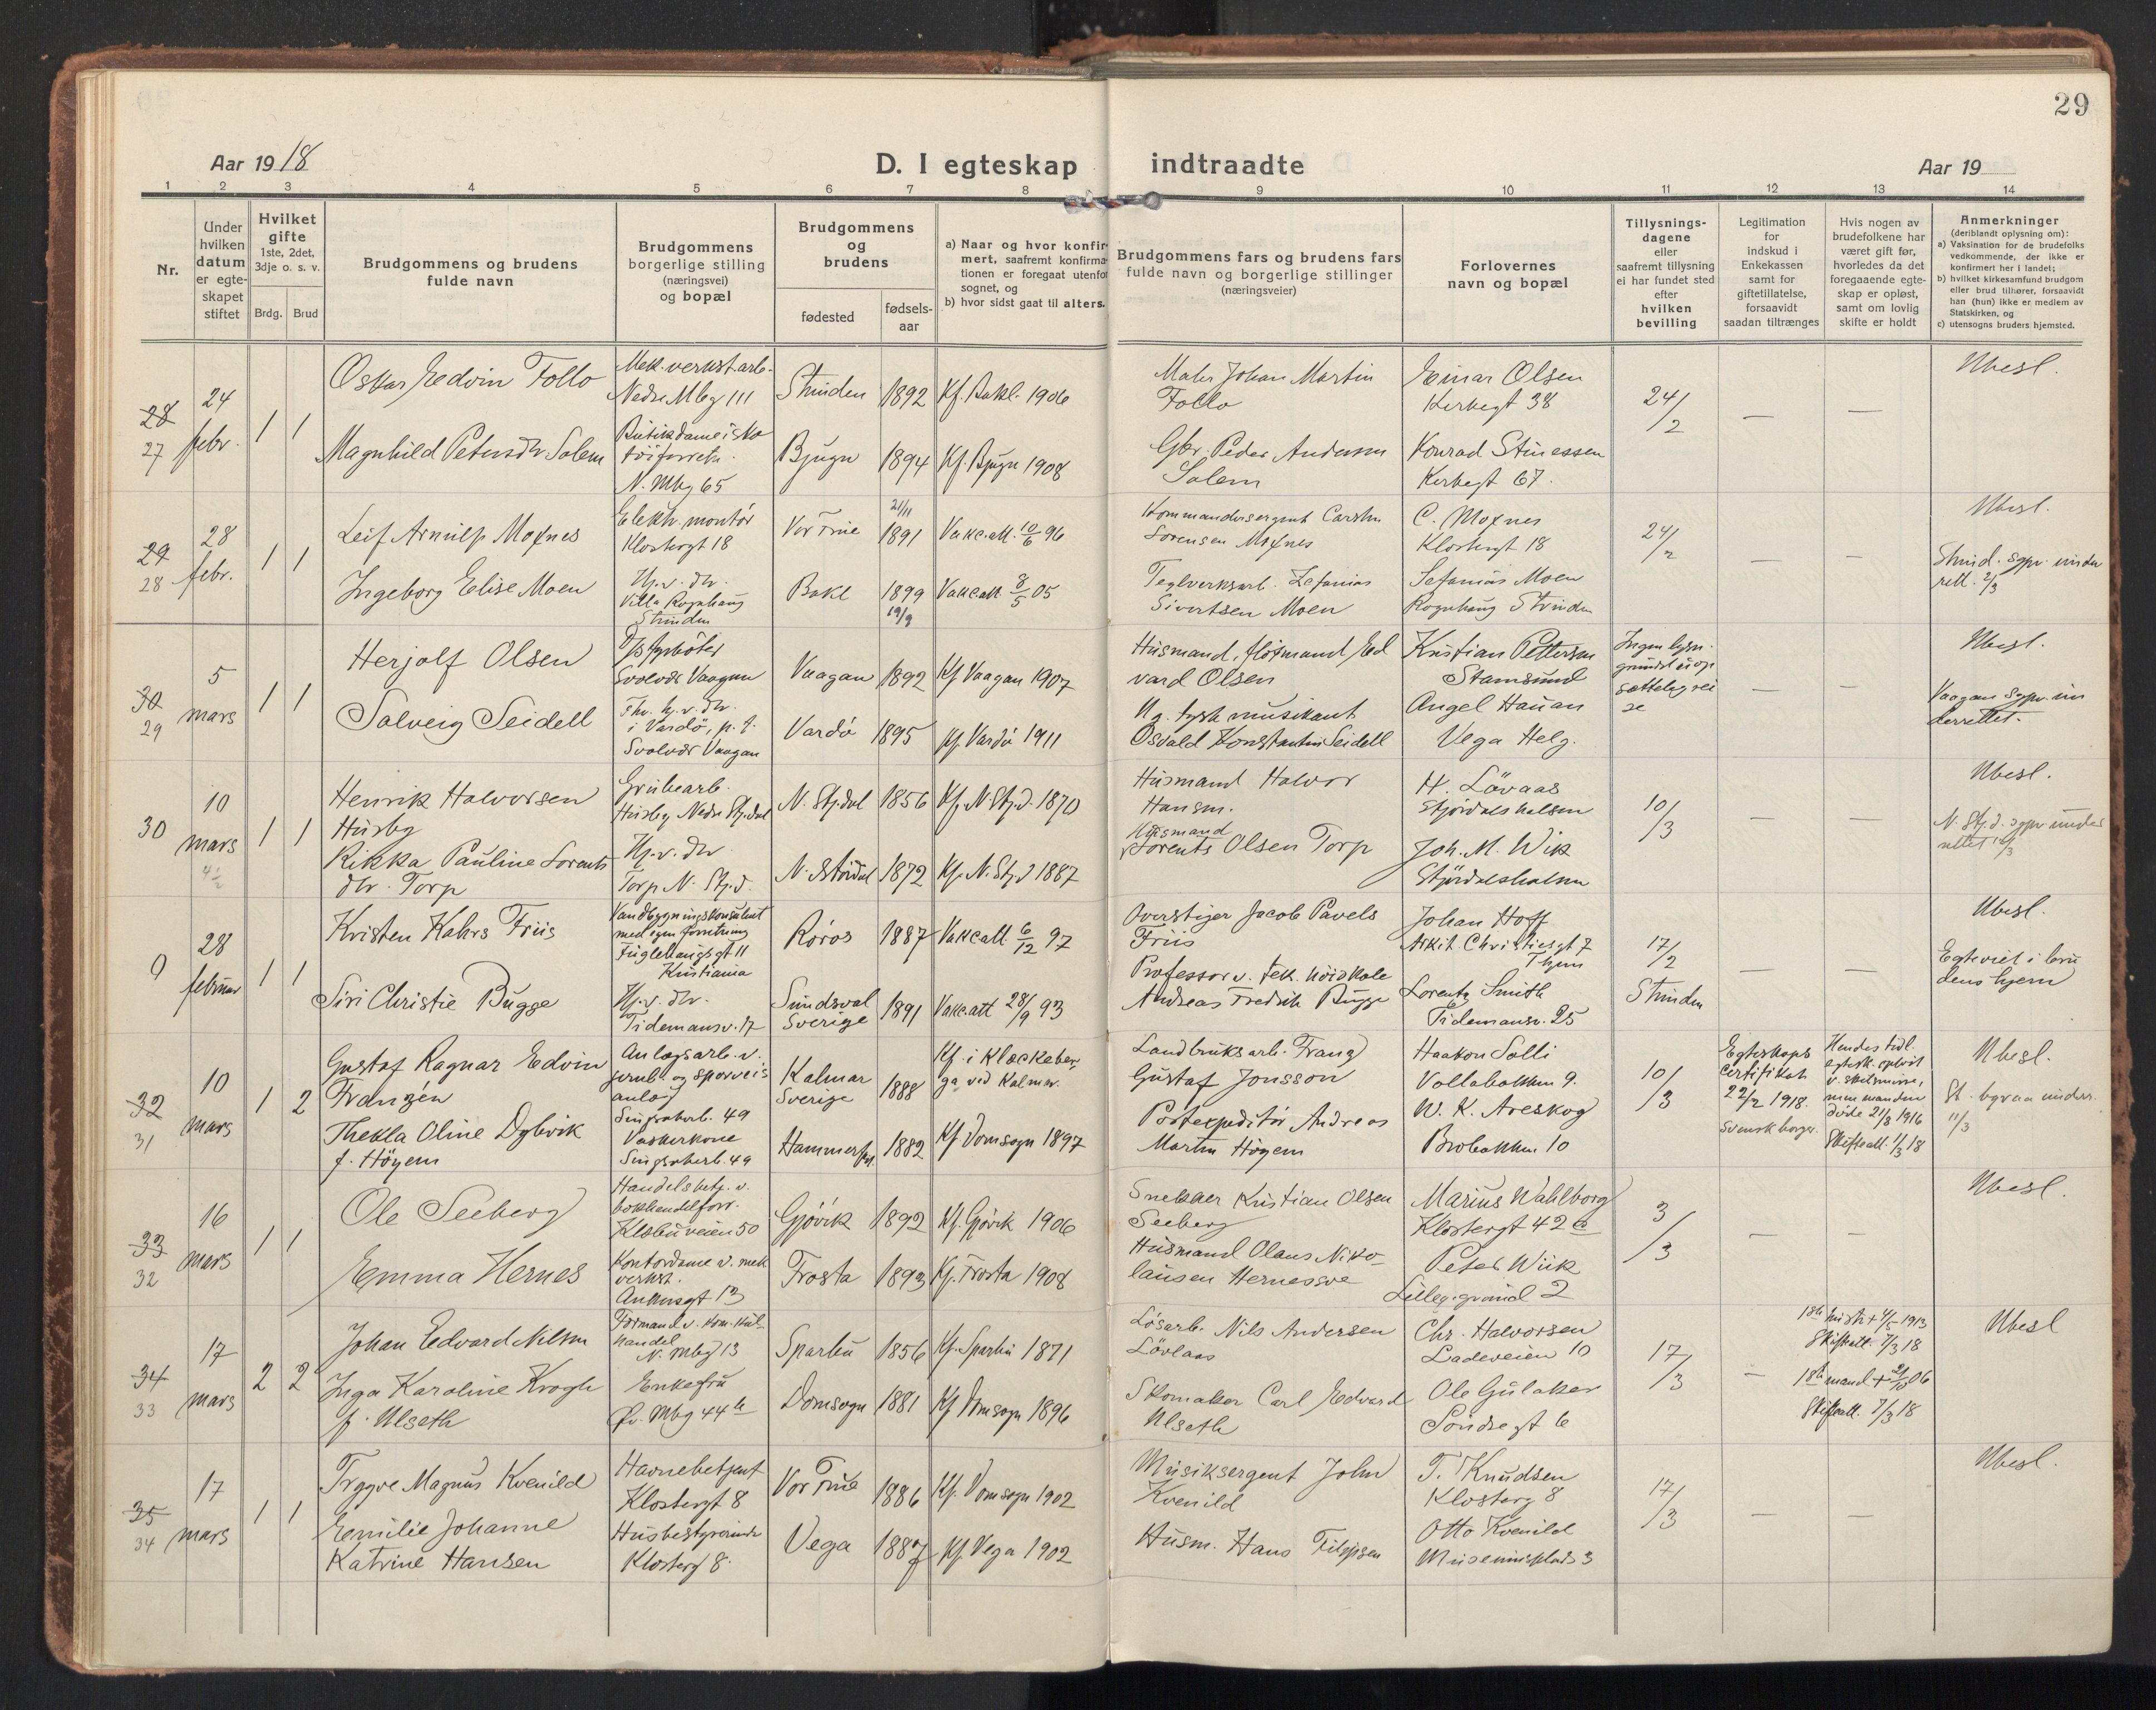 29
Aar 1918
D. I egteskap indtraadte
Aar 19
1 2 3 4 5 6 7 8 9 10 11 12 13 14
Nr.
Under hvilken datum er egteskapet stiftet
Hvilket gifte
1ste, 2det, 3dje o. s. v.
Brdg. Brud
Brudgommens og brudens fulde navn
Brudgommens borgerlige stilling (næringsvei) og bopæl
Brudgommens og brudens
fødested
fødsels-aar
a) Naar og hvor konfirmert, saafremt konfirmationen er foregaat utenfor sognet, og
b) hvor sidst gaat til alters.
Brudgommens fars og brudens fars fulde navn og borgerlige stillinger (næringsveier)
Forlovernes navn og bopæl
Tillysningsdagene eller saafremt tillysning ei har fundet sted efter hvilken bevilling
Legitimation for indskud i Enkekassen samt for giftetillatelse, forsaavidt saadan tiltrænges
Hvis nogen av brudefolkene har været gift før, hvorledes da det foregaaende egteskap er opløst, samt om lovlig skifte er holdt
Anmerkninger
(deriblandt oplysning om):
a) Vaksination for de brudefolks vedkommende, der ikke er konfirmert her i landet;
b) hvilket kirkesamfund brudgom eller brud tilhører, forsaavidt han (hun) ikke er medlem av Statskirken, og
c) utensogns bruders hjemsted.
28
27
24 febr.
1 1
Oskar Edvin Follo
Mek. verkst. arb.
Nedre Mbg 111
Strinden 1892 Kf. Bakl. 1906
Maler Johan Martin
Follo
Einar Olsen
Kirkegt 38
24/2
—
—
Ubesl.
Magnhild Petersdtr Solem
Butikdame i sko
tøiforretn.
N. Mbg 65
Bjugn 1894 Kf. Bjugn 1908
Gbr. Peder Andersen
Solem
Konrad Stinessen
Kirkegt 67.
29
28
28 febr.
1 1
Leif Arnulf Moxnes
Elektr. montör
Klostergt 18
Vor Frue 21/11 1891 Vakc.att. 10/6 96
Kommandersergent Carsten
Sorensen Moxnes
C. Moxnes
Klostergt 18
24/2
—
—
Ubesl.
Strind. sgpr. under
rett. 2/3
Ingeborg Elise Moen
Hj. v. dtr.
Villa Rognhaug
Strinden
Bakl 1899 19/9 Vakc.att. 8/5 05
Teglverksarb. Zefanias
Sivertsen Moen
Sefanias Moen
Rognhaug Strinden
30
29
5 mars
1 1
Herjolf Olsen
D/s fyrböter
Svolvær Vaagan
Vaagan 1892 Kf Vaagan 1907
Husmand, fløtmand Ed
vard Olsen
Kristian Pettersen
Stamsund
—
—
Ubesl.
Vaagan sgpr. un
derrettet.
Solveig Seidell
Fhv. hj. v. dtr.
i Vardö, p. t.
Svolvær Vaagan
Vardö 1895 Kf. Vardö 1911
Ug. tysk musikant
Osvald Konstantin Seidell
Angel Hauan
Vega Helg.
30
10 mars
4 1/2
1 1
Henrik Halvorsen
Husby
Grubearb.
Husby Nedre Stj.dal
N. Stj.dal 1856 Kf. N. Stj.d. 1870
Husmand Halvor
Hansen.
H. Lövaas
Stjördalshalsen
10/3
—
—
Ubesl.
N. Stj.d. sgpr. under
rettet
Rikka Pauline Lorents
dtr. Torp
Hj. v. dtr.
Torp N. Stj.d.
N. Stördal 1872 Kf. N. Stj.d 1887
Husmand
Lorents Olsen Torp
Joh. M. Wik
Stjördalshalsen
9
28 februar
1 1
Kristen Kahrs Friis
Vandbygningskonsulent
med egen forretning
Fuglehaugsgt 11
Kristiania
Röros 1887 Vakc.att 6/12 97
Overstiger Jacob Pavels
Friis
Johan Hoff
Arkit. Christiesgt 7
Thjem
17/2
Strinden
—
—
Ubesl.
Egteviet i bru
dens hjem
Siri Christie Bugge
Hj. v. dtr.
Tidemansv. 17
Sundsval
Sverige
1891 Vakc.att 28/9 93
Professor v. tek. höiskole
Andreas Fredrik Bugge
Lorentz Smith
Tidemansv. 25
32
31
10 mars
1 2
Gustaf Ragnar Edvin
Franzén
Anlægsarb. v.
jernb. og sporveis
anlæg
Singsakerb. 49
Kalmar
Sverige
1888
Kf. i Klackeber
ga ved Kalmar.
Landbruksarb. Franz
Gustaf Jonsson
Haakon Solli
Vollabakken 9.
10/3
Egteskaps
certifikat
22/2 1918.
Svensk borger.
Hendes tidl.
egtesk. oplöst
v. skilsmisse,
men manden
döde 21/3 1916
Skifteatt. 1/3 18
Ubesl.
St. byraa underr.
11/3
Thekla Oline Dybvik
f. Höyem
Vaskerkone
Singsakerb. 49
Hammerfest 1882 Kf Domsogn 1897
Postexpeditör Andreas
Martin Höyem
W. K. Areskog
Brobakken 10
33
32
16 mars
1 1
Ole Seeberg
Handelsbetj. v.
bokhandelforr.
Klæbuveien 50
Gjövik 1892 Kf. Gjövik 1906
Snekker Kristian Olsen
Seeberg
Marius Wahlborg
Klostergt 42 a
3/3
—
—
Ubesl.
Emma Hernes
Kontordame v. mek
verkst.
Ankersgt 13
Frosta 1893 Kf. Frosta 1908
Husmand Olaus Niko
lausen Hernessve
Peter Wiik
Lilleg. grænd 2
34
33
17 mars
2 2
Johan Edvard Nilsen
Formand v. kom. kul-
handel
N. Mbg 13
Sparbu 1856 Kf. Sparbu 1871
Lösarb. Nils Andersen
Lövlaas
Chr. Halvorsen
Ladeveien 10
17/3
—
1ste hustr. + 4/5 1913
Skifteatt. 7/3 18
Ubesl
Inga Karoline Krogh
f. Ulseth
Enkefru
Öv. Mbg 44 b
Domsogn 1881 Kf Domsogn 1896
Skomaker Carl Edvard
Ulseth
Ole Gulaker
Söndregt 6
1ste mand + 21/10 06
Skifteatt. 7/3 18
35
34
17 mars
1 1
Trygve Magnus Kvenild
Havnebetjent
Klostergt 8
Vor Frue 1886 Kf. Domsogn 1902
Musiksergent John
Kvenild
T. Knudsen
Klosterg 8
17/3
—
—
Ubesl.
Emilie Johanne
Katrine Hansen
Husbestyrerinde
Klosterg 8.
Vega 1887 Kf Vega 1902
Husm. Hans Filipsen
Otto Kvenild
Museumsplads 3